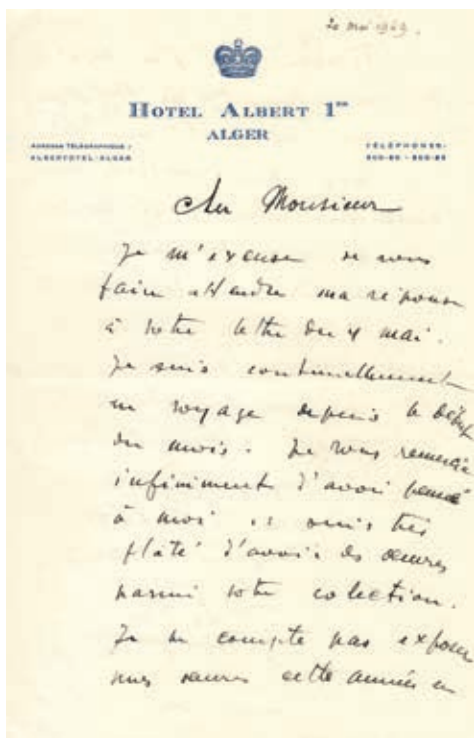 20 mai 1949.
HOTEL ALBERT 1er
ALGER
ADRESSE TÉLÉGRAPHIQUE :
ALBERTOTEL-ALGER
TÉLÉPHONES:
Cher Monsieur
Je m'excuse de vous
faire attendre ma réponse
à votre lettre du 4 mai.
Je suis continuellement
en voyage depuis le début
du mois. Je vous remercie
infiniment d'avoir pensé
à moi suis très
flaté d'avoir des œuvres
parmi votre colection.
Je ne compte pas exposer
mes œuvres cette année en